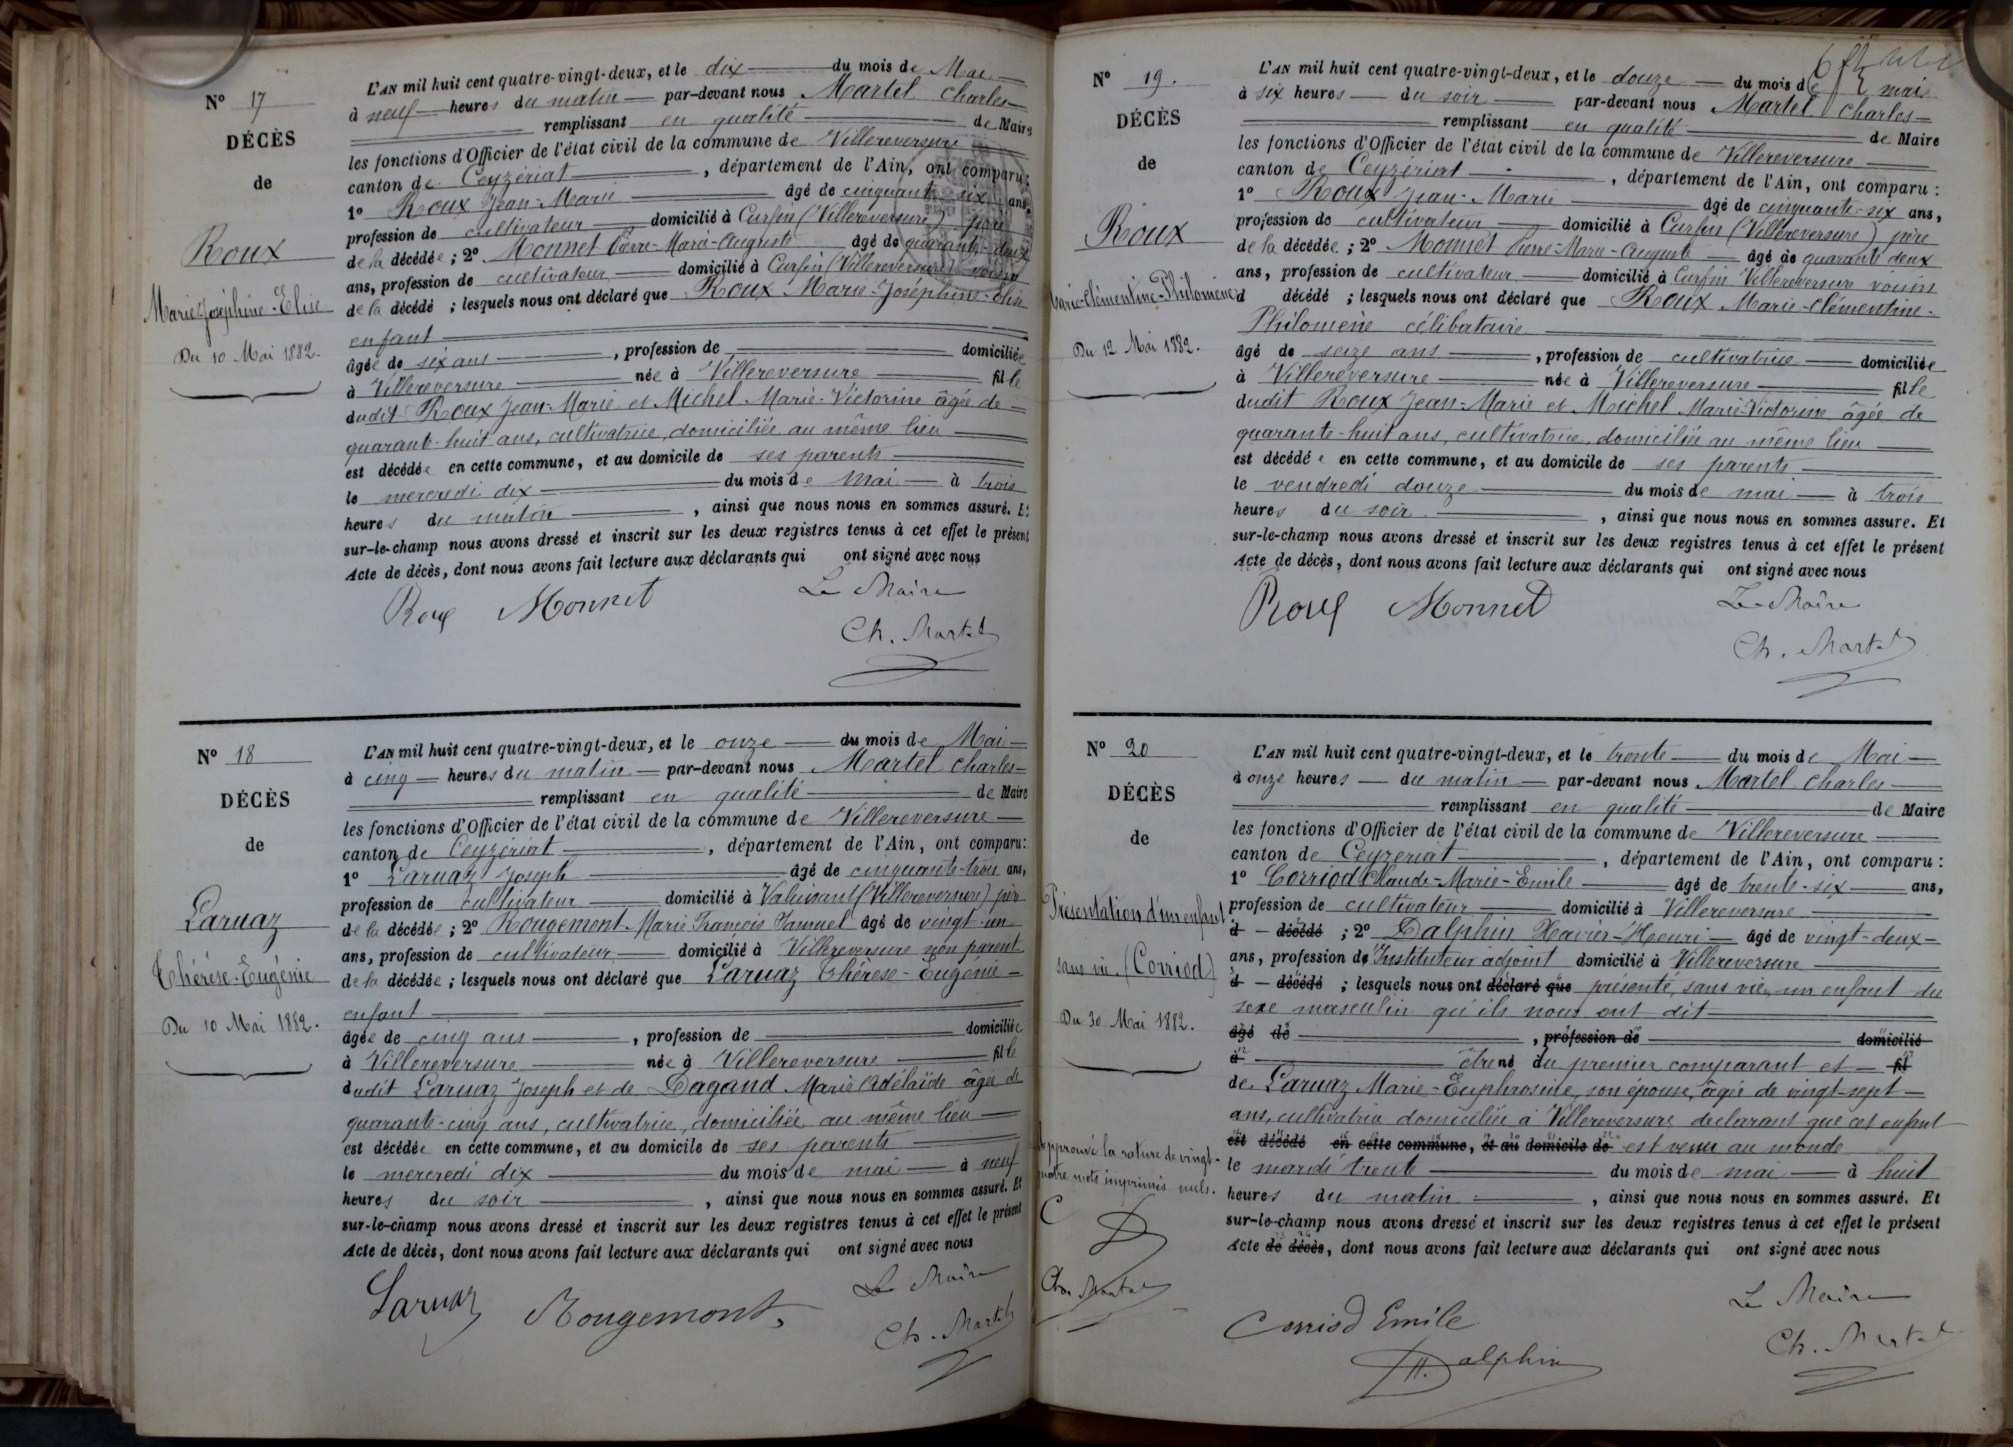 N° 17
DÉCÈS
de
Roux
Marie Joséphine-Elise
Du 10 Mai 1882.
L'AN mil huit cent quatre-vingt-deux, et le dix du mois de Mai
à neuf heures du matin par-devant nous Martel Charles
remplissant en qualité de Maire
les fonctions d'Officier de l'état civil de la commune de Villereversure
canton de Ceyzériat, département de l'Ain, ont comparu:
1° Roux Jean-Marie âgé de cinquante six ans,
profession de cultivateur domicilié à Curfin (Villereversure) père
de la décédée; 2° Monnet Pierre-Marie-Auguste âgé de quarante-deux
ans, profession de cultivateur domicilié à Curfin (Villereversure) voisin
de la décédé; lesquels nous ont déclaré que Roux Marie-Joséphine-Elise
enfant
âgée de six ans, profession de domiciliée
à Villereversure née à Villereversure fille
dudit Roux Jean-Marie et Michel Marie-Victorine âgée de
quarante-huit ans, cultivatrice, domiciliée au même lieu
est décédée en cette commune, et au domicile de ses parents
le mercredi dix du mois de Mai à trois
heures du matin, ainsi que nous nous en sommes assuré. Et
sur-le-champ nous avons dressé et inscrit sur les deux registres tenus à cet effet le présent
Acte de décès, dont nous avons fait lecture aux déclarants qui ont signé avec nous
Roux Monnet Le Maire
Ch. Martel
N° 18
DÉCÈS
de
Laruaz
Thérèse-Eugénie
Du 10 Mai 1882.
L'AN mil huit cent quatre-vingt-deux, et le onze du mois de Mai
à cinq heures du matin par-devant nous Martel Charles
remplissant en qualité de Maire
les fonctions d'Officier de l'état civil de la commune de Villereversure
canton de Ceyzériat, département de l'Ain, ont comparu:
1° Laruaz Joseph âgé de cinquante-trois ans,
profession de cultivateur domicilié à (Villereversure) père
de la décédée; 2° Rougemont Marie François Samuel âgé de vingt-un
ans, profession de cultivateur domicilié à Villereversure non parent
de la décédée; lesquels nous ont déclaré que Laruaz Thérèse-Eugénie
enfant
âgée de cinq ans, profession de domiciliée
à Villereversure née à Villereversure fille
dudit Laruaz Joseph et de Dagand Marie Adélaïde âgée de
quarante-cinq ans, cultivatrice, domiciliée au même lieu
est décédée en cette commune, et au domicile de ses parents
le mercredi dix du mois de mai à neuf
heures du soir, ainsi que nous nous en sommes assuré. Et
sur-le-champ nous avons dressé et inscrit sur les deux registres tenus à cet effet le présent
Acte de décès, dont nous avons fait lecture aux déclarants qui ont signé avec nous
Laruaz Rougemont Le Maire
Ch. Martel
N° 19.
DÉCÈS
de
Roux
Marie-Clémentine-Philomène
Du 12 Mai 1882.
L'AN mil huit cent quatre-vingt-deux, et le douze du mois de mai
à six heures du soir par-devant nous Martel Charles
remplissant en qualité de Maire
les fonctions d'Officier de l'état civil de la commune de Villereversure
canton de Ceyzériat, département de l'Ain, ont comparu:
1° Roux Jean-Marie âgé de cinquante-six ans,
profession de cultivateur domicilié à Curfin (Villereversure) père
de la décédée; 2° Monnet Pierre-Marie-Auguste âgé de quarante deux
ans, profession de cultivateur domicilié à Curfin Villereversure voisin
d décédé; lesquels nous ont déclaré que Roux Marie-Clémentine-
Philomène célibataire
âgé de seize ans, profession de cultivatrice domiciliée
à Villereversure née à Villereversure fille
dudit Roux Jean-Marie et Michel Marie-Victorine âgée de
quarante-huit ans, cultivatrice, domiciliée au même lieu
est décédée en cette commune, et au domicile de ses parents
le vendredi douze du mois de mai à trois
heures du soir, ainsi que nous nous en sommes assuré. Et
sur-le-champ nous avons dressé et inscrit sur les deux registres tenus à cet effet le présent
Acte de décès, dont nous avons fait lecture aux déclarants qui ont signé avec nous
Roux Monnet Le Maire
Ch. Martel
N° 20
DÉCÈS
de
Présentation d'un enfant
sans vie (Corriod)
Du 30 Mai 1882.
Approuvé la rature de vingt-
quatre mots imprimés nuls.
C D
Ch. Martel
L'AN mil huit cent quatre-vingt-deux, et le trente du mois de Mai
à onze heures du matin par-devant nous Martel Charles
remplissant en qualité de Maire
les fonctions d'Officier de l'état civil de la commune de Villereversure
canton de Ceyzeriat, département de l'Ain, ont comparu:
1° Corriod Claude-Marie-Emile âgé de trente-six ans,
profession de cultivateur domicilié à Villereversure
d décédé; 2° Dalphin Xavier-Henri âgé de vingt-deux
ans, profession de Instituteur adjoint domicilié à Villereversure
d décédé; lesquels nous ont déclaré que présenté, sans vie, un enfant du
sexe masculin qu'ils nous ont dit
âgé de, profession de domicilié
à être né du premier comparant et fil
de Laruaz Marie-Euphrosine, son épouse, âgée de vingt-sept
ans, cultivatrice domiciliée à Villereversure déclarant que cet enfant
est décédé en cette commune, et au domicile de est venu au monde
le mardi trente du mois de mai à huit
heures du matin, ainsi que nous nous en sommes assuré. Et
sur-le-champ nous avons dressé et inscrit sur les deux registres tenus à cet effet le présent
Acte de décès, dont nous avons fait lecture aux déclarants qui ont signé avec nous
Corriod Emile Le Maire
H. Dalphin Ch. Martel